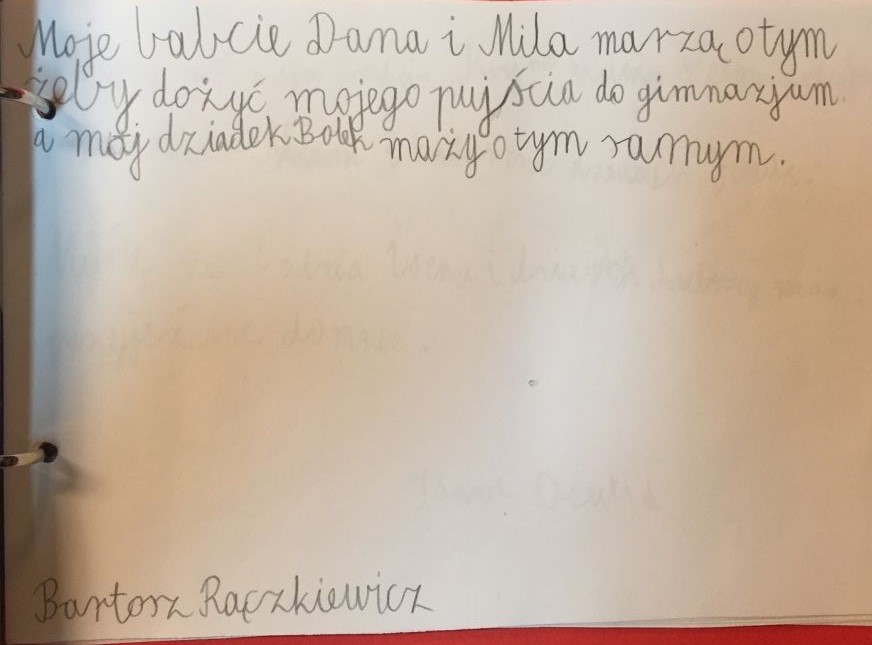 Moje babcie Dana i Mila marzą otym
żeby dożyć mojego pujścia do gimnazjum
a mój dziadek Bolek maży otym samym.
Bartosz Rączkiewicz